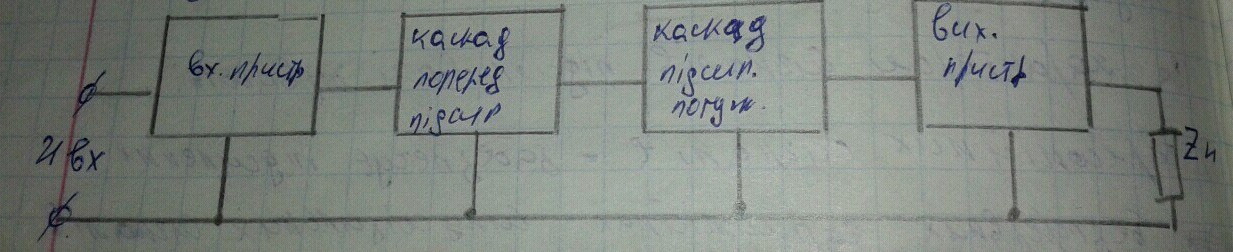 вх. пристр
каскад
поперед
підсил
каскад
підсил.
потуж.
вих.
пристр
U вх
Zн